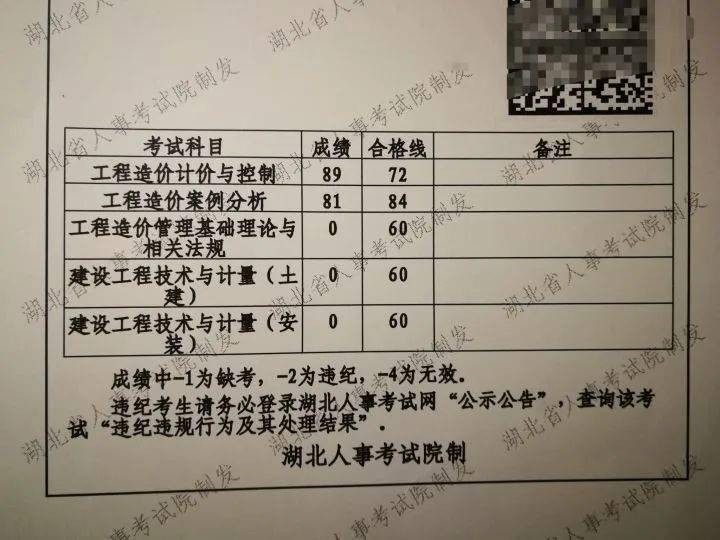 考试科目 成绩 合格线 备注
工程造价计价与控制 89 72
工程造价案例分析 81 84
工程造价管理基础理论与
相关法规 0 60
建设工程技术与计量（土
建） 0 60
建设工程技术与计量（安
装） 0 60
成绩中-1为缺考，-2为违纪，-4为无效。
违纪考生请务必登录湖北人事考试网“公示公告”，查询该考
试“违纪违规行为及其处理结果”.
湖北人事考试院制
湖北省人事考试院制发
湖北省人事考试院制发
湖北省人事考试院制发
湖北省人事考试院制发
湖北省人事考试院制发
湖北省人事考试院制发
湖北省人事考试院制发
湖北省人事考试院制发